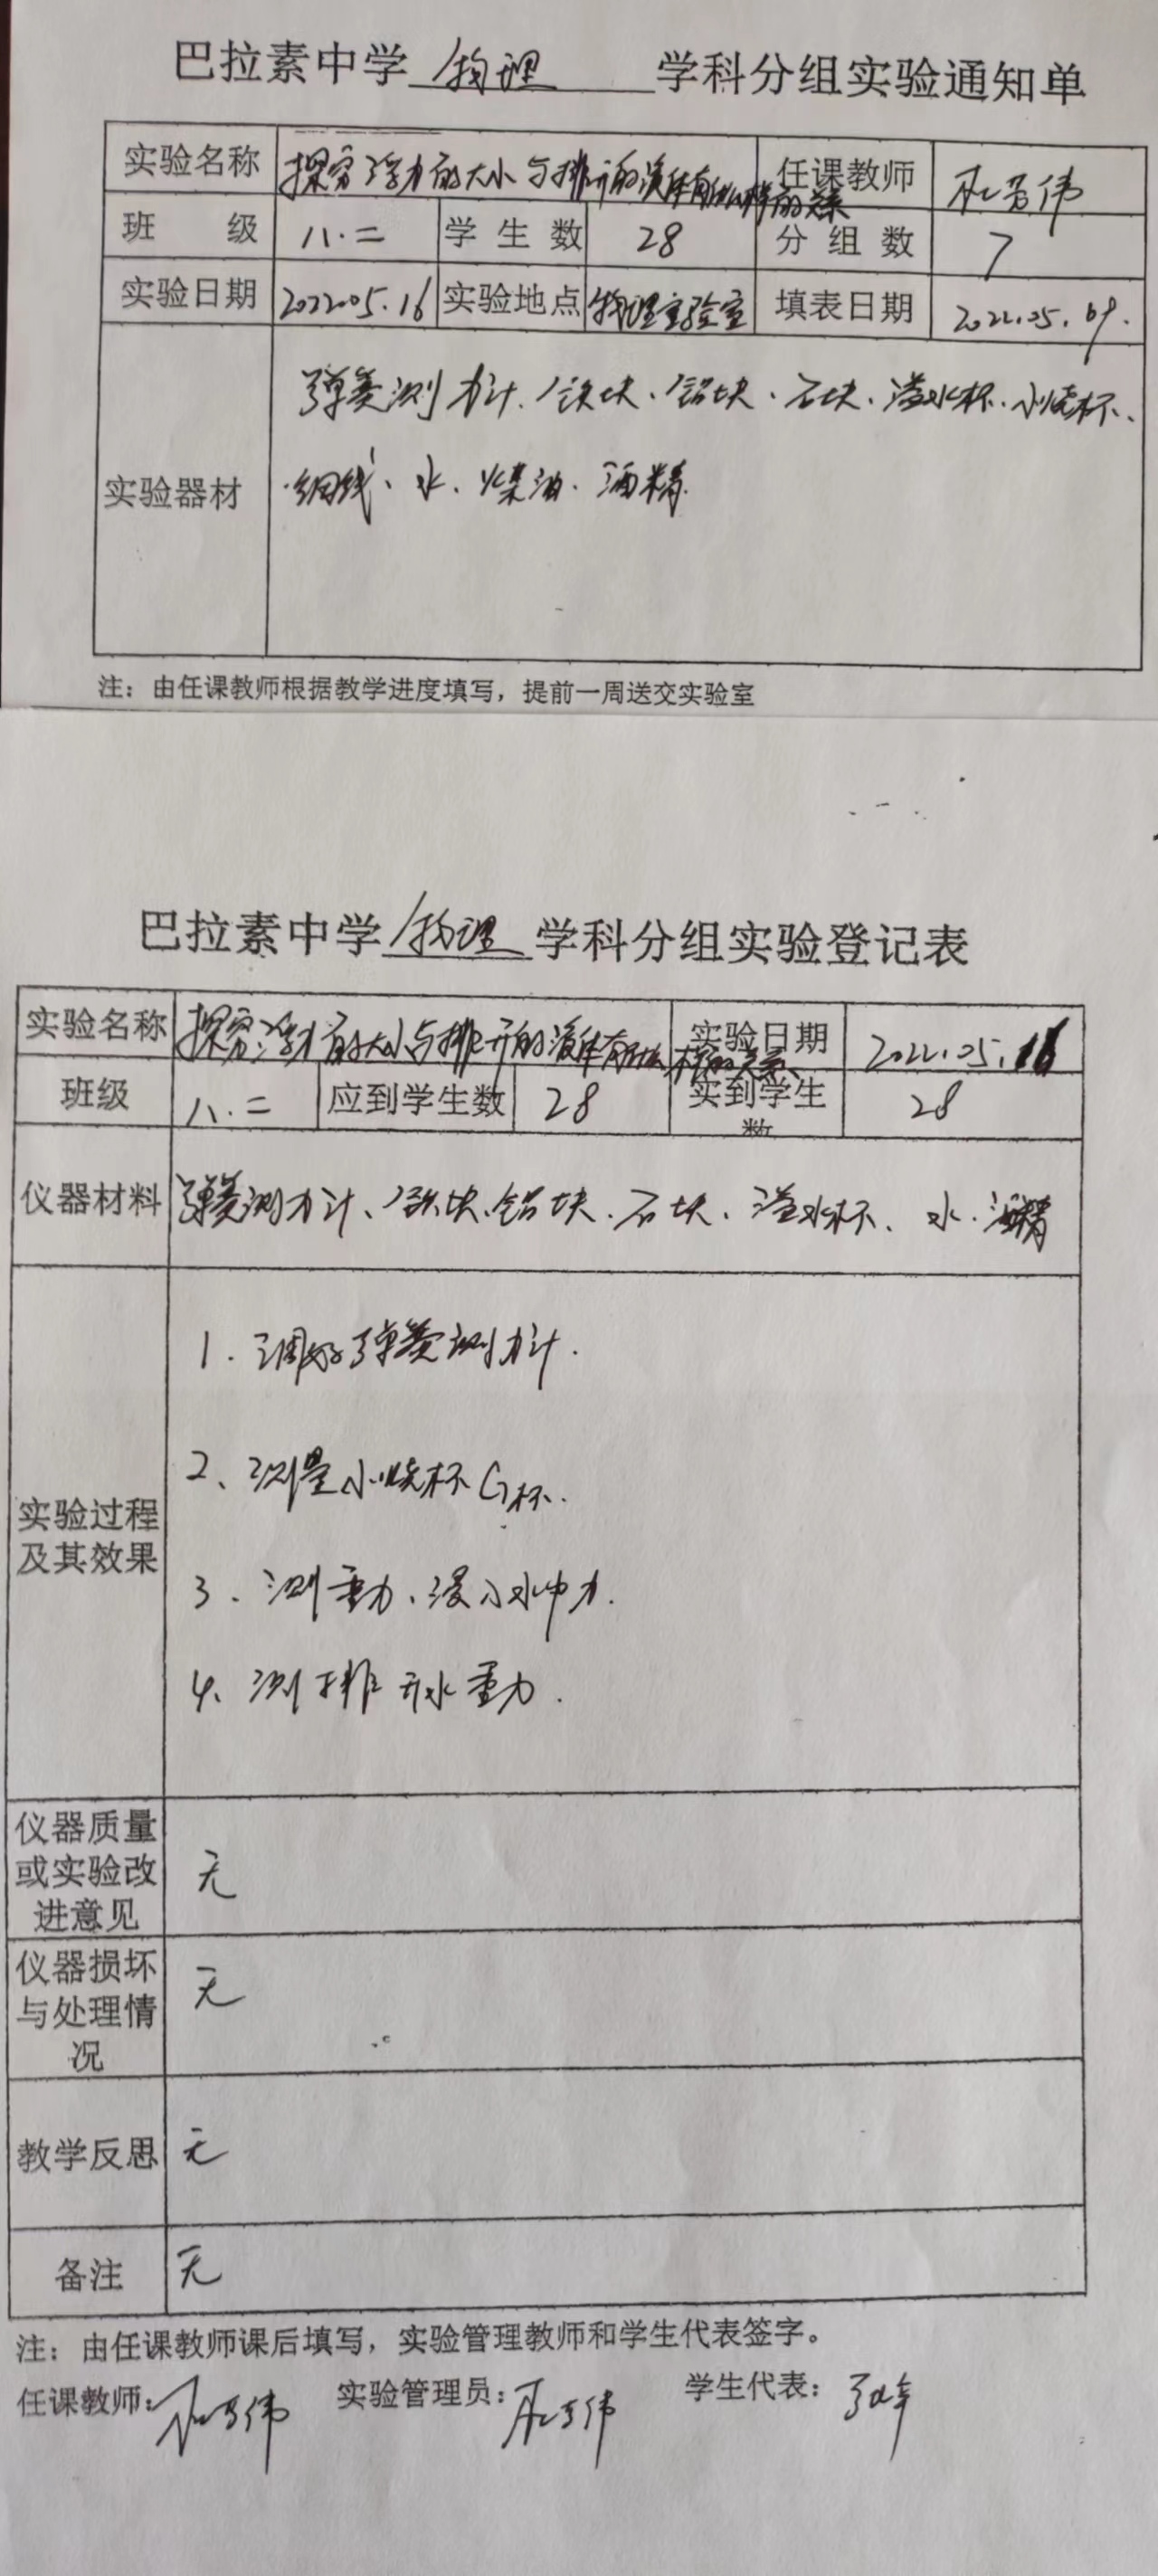 巴拉素中学 物理 学科分组实验通知单
实验名称 探究浮力的大小与排开的液体有什么样的关系 任课教师 伟
班 级 八.二 学生数 28 分组数 7
实验日期 2022.05.16 实验地点 物理实验室 填表日期 2022.05.09.
实验器材 弹簧测力计、铁块、铝块、石块、溢水杯、小烧杯、
细线、水、柴油、酒精.
注：由任课教师根据教学进度填写，提前一周送交实验室
巴拉素中学 物理 学科分组实验登记表
实验名称 探究浮力的大小与排开的液体有什么样的关系 实验日期 2022.05.16
班级 八.二 应到学生数 28 实到学生数 28
仪器材料 弹簧测力计、铁块、铝块、石块、溢水杯、水、酒精
实验过程
及其效果
1. 调好弹簧测力计.
2、测量小烧杯G杯.
3. 测重力、浸入水中力.
4. 测排开水重力.
仪器质量
或实验改
进意见
无
仪器损坏
与处理情
况
无
教学反思 无
备注 无
注：由任课教师课后填写，实验管理教师和学生代表签字。
任课教师： 伟 实验管理员： 伟 学生代表：